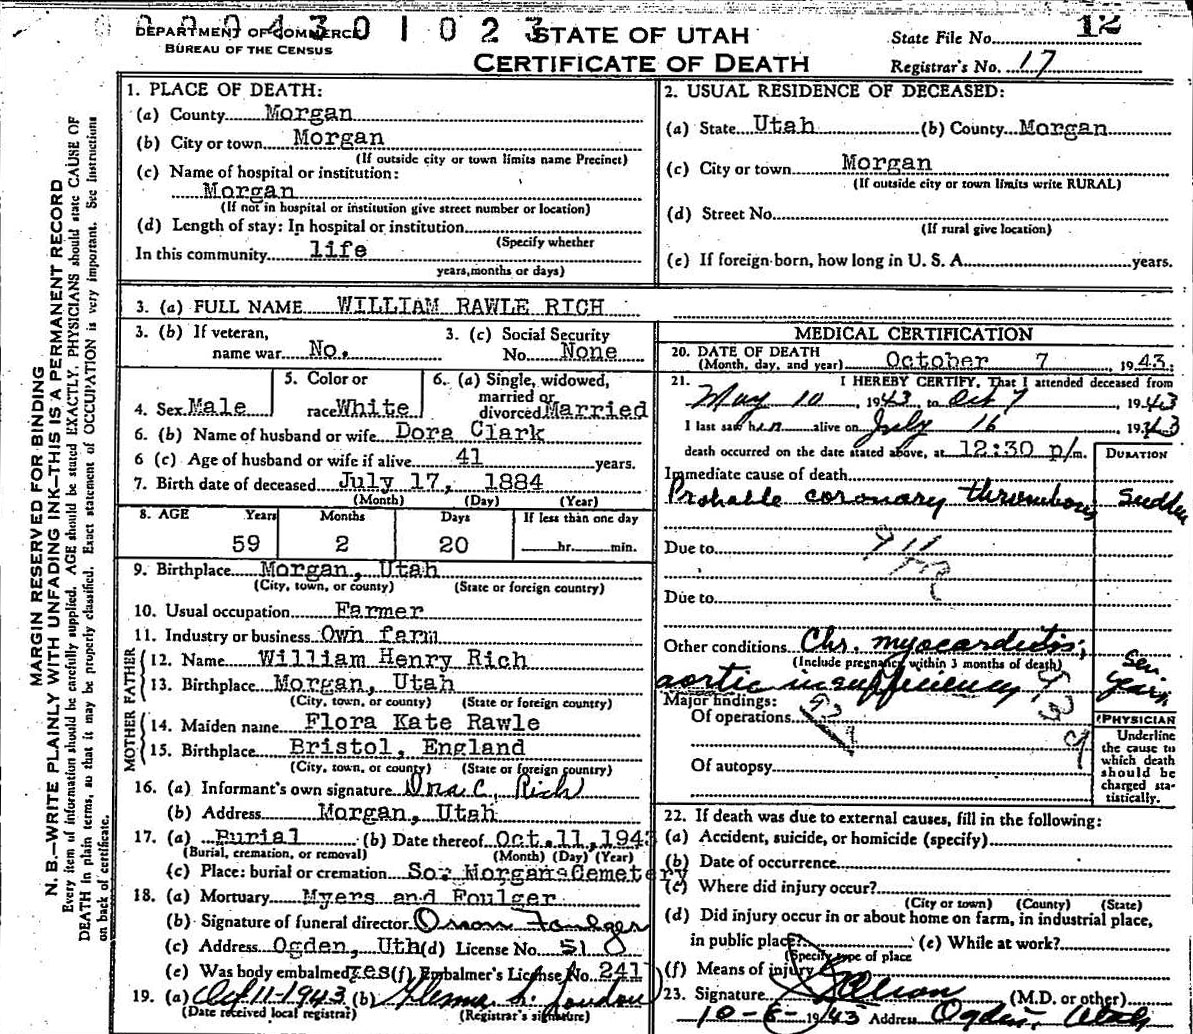 0 0 0 4 3 0 1 0 2 3
DEPARTMENT OF COMMERCE
BUREAU OF THE CENSUS
STATE OF UTAH
CERTIFICATE OF DEATH
State File No. 12
Registrar's No. 17
MARGIN RESERVED FOR BINDING
N. B.—WRITE PLAINLY WITH UNFADING INK—THIS IS A PERMANENT RECORD
Every item of information should be carefully supplied. AGE should be stated EXACTLY. PHYSICIANS should state CAUSE OF
DEATH in plain terms, so that it may be properly classified. Exact statement of OCCUPATION is very important. See Instructions
on back of certificate.
1. PLACE OF DEATH:
(a) County Morgan
(b) City or town Morgan
(If outside city or town limits name Precinct)
(c) Name of hospital or institution:
Morgan
(If not in hospital or institution give street number or location)
(d) Length of stay: In hospital or institution
(Specify whether
In this community life
years, months or days)
2. USUAL RESIDENCE OF DECEASED:
(a) State Utah (b) County Morgan
(c) City or town Morgan
(If outside city or town limits write RURAL)
(d) Street No.
(If rural give location)
(e) If foreign born, how long in U. S. A. years.
3. (a) FULL NAME WILLIAM RAWLE RICH
3. (b) If veteran,
name war No.
3. (c) Social Security
No. None
4. Sex Male
5. Color or
race White
6. (a) Single, widowed,
married or
divorced Married
6. (b) Name of husband or wife Dora Clark
6 (c) Age of husband or wife if alive 41 years.
7. Birth date of deceased July 17, 1884
(Month) (Day) (Year)
8. AGE Years Months Days If less than one day
59 2 20 hr. min.
9. Birthplace Morgan, Utah
(City, town, or county) (State or foreign country)
10. Usual occupation Farmer
11. Industry or business Own farm
FATHER
12. Name William Henry Rich
13. Birthplace Morgan, Utah
(City, town, or county) (State or foreign country)
MOTHER
14. Maiden name Flora Kate Rawle
15. Birthplace Bristol, England
(City, town, or county) (State or foreign country)
16. (a) Informant's own signature C. Rich
(b) Address Morgan, Utah
17. (a) Burial (b) Date thereof Oct. 11, 1943
(Burial, cremation, or removal) (Month) (Day) (Year)
(c) Place: burial or cremation So. Morgan Cemetery
18. (a) Mortuary Myers and Foulger
(b) Signature of funeral director Orson Foulger
(c) Address Ogden, Uth (d) License No. 51
(e) Was body embalmed? yes (f) Embalmer's License No. 241
19. (a) Oct 11-1943 (b)
(Date received local registrar) (Registrar's signature)
MEDICAL CERTIFICATION
20. DATE OF DEATH
(Month, day, and year) October 7 1943.
21. I HEREBY CERTIFY, That I attended deceased from
May 10, 1943, to Oct 7, 1943
I last saw him alive on July 16, 1943
death occurred on the date stated above, at 12:30 p/m.
DURATION
Immediate cause of death
Probable coronary thrombosis Sudden
Due to
Due to
Other conditions Chr. myocarditis;
(Include pregnancy within 3 months of death)
aortic insufficiency
years
Major findings:
Of operations
Of autopsy
PHYSICIAN
Underline
the cause to
which death
should be
charged sta-
tistically.
22. If death was due to external causes, fill in the following:
(a) Accident, suicide, or homicide (specify)
(b) Date of occurrence
(c) Where did injury occur?
(City or town) (County) (State)
(d) Did injury occur in or about home on farm, in industrial place,
in public place? (e) While at work?
(Specify type of place
(f) Means of injury
23. Signature (M.D. or other)
10-8-1943 Address Ogden, Utah